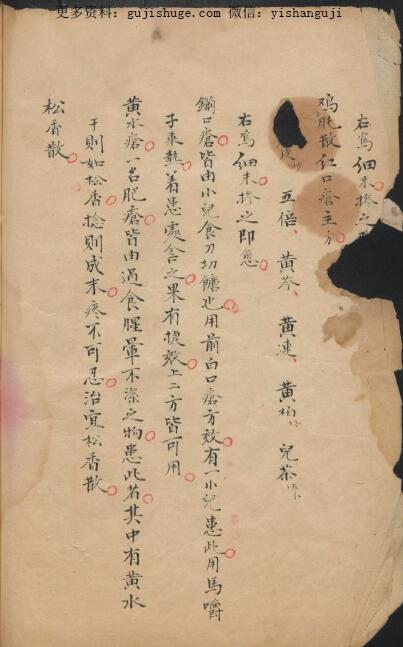 更多资料：gujishuge.com 微信：yishanguji
右為細末摻之
鸡肫散红口瘡主方
皮 五倍、黄芩、黄連、黄柏、兒茶
右為細末摻之即愈
鎖口瘡皆由小兒食刀切饝也用前白口瘡方效有一小兒患此用馬嚼
子乘熱着患處含之果有捷效上二方皆可用
黄水瘡一名肥瘡皆由過食腥葷不潔之物患此若其中有黄水
干則如松香捻則成末疼不可忍治宜松香散
松香散